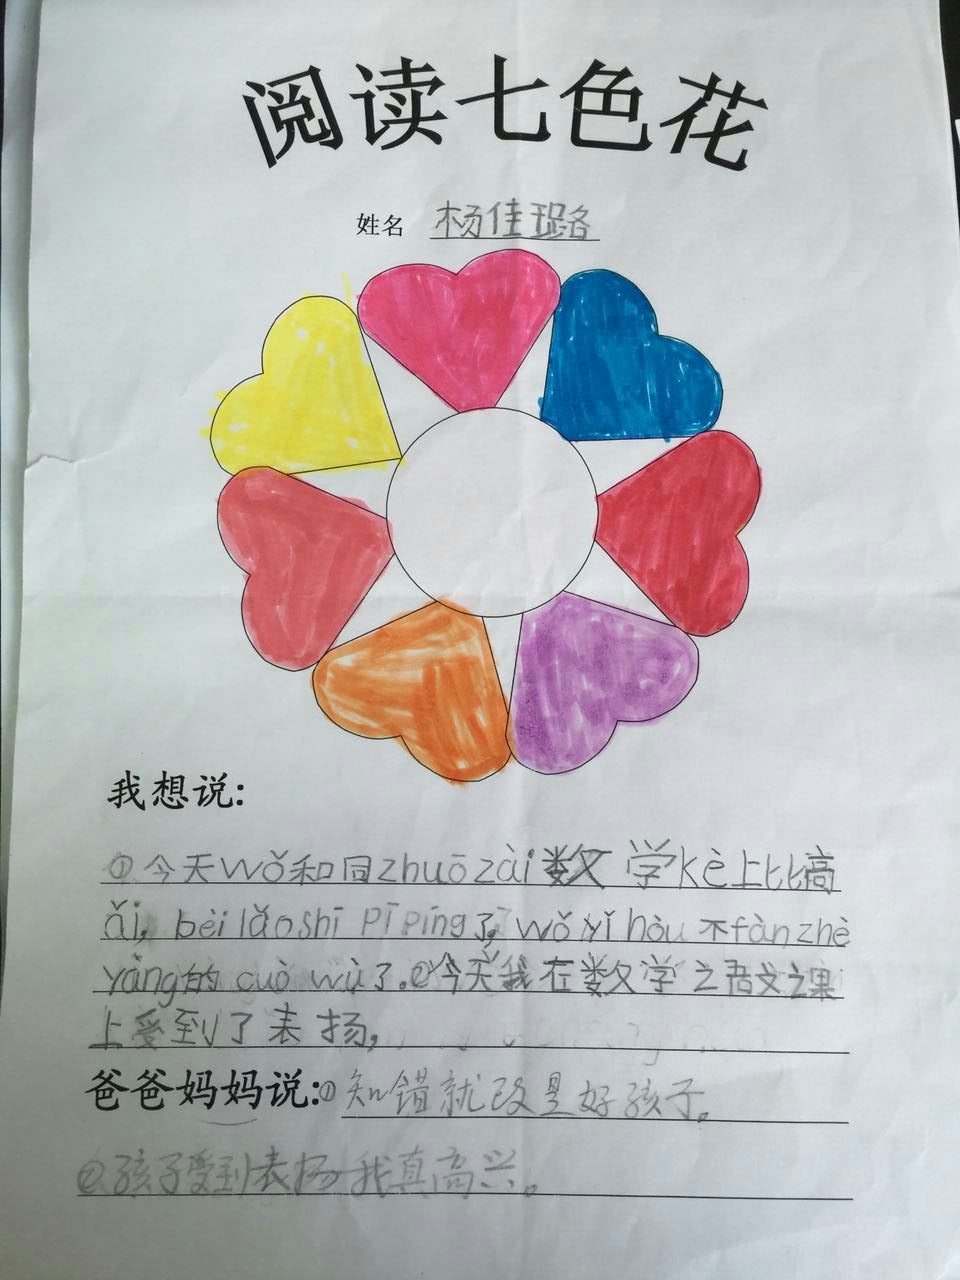 阅读七色花
姓名 杨佳璐
我想说:
①今天wǒ和同zhuō zài 数学kè上比比高
ǎi, bèi lǎo shī pī píng了, wǒ yǐ hòu 不fàn zhè
yàng的 cuò wù 了.②今天我在数学之语文之果
上受到了表扬,
爸爸妈妈说:①知错就改是好孩子。
②孩子受到表扬我真高兴。